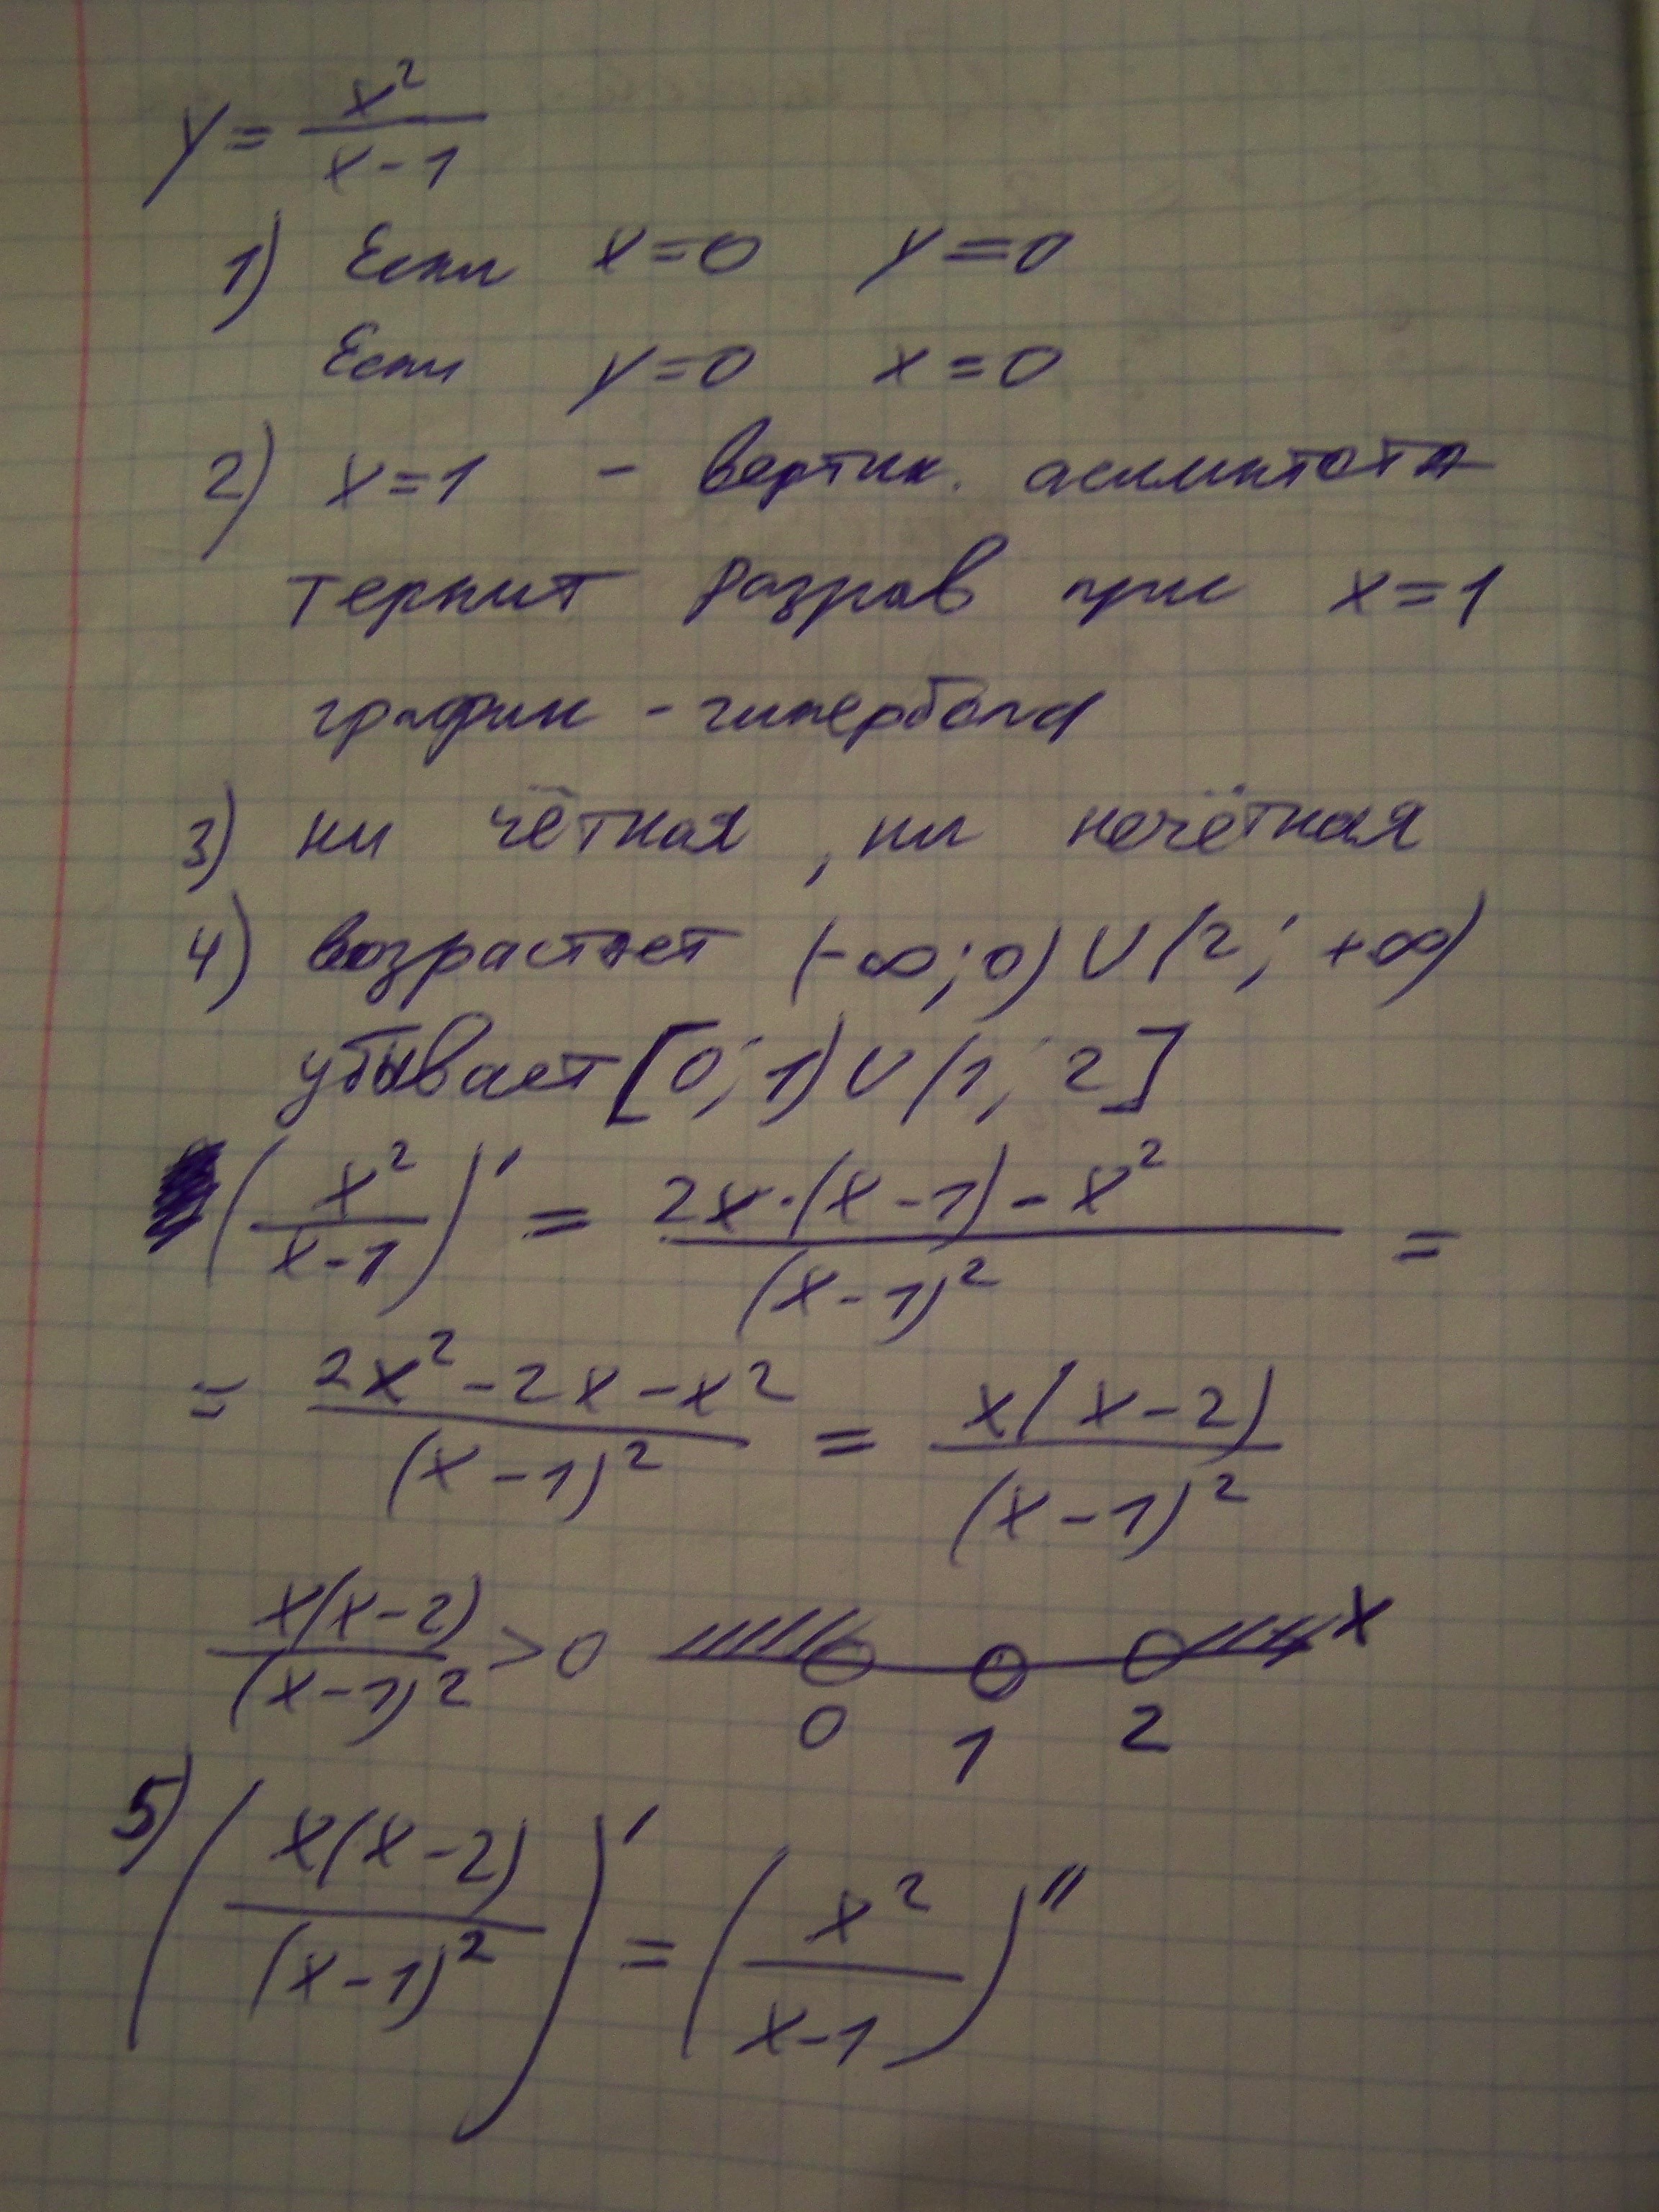 y = x²/(x-1)
1) Если x=0 y=0
Если y=0 x=0
2) x=1 - вертик. асимптота
терпит разрыв при x=1
график - гипербола
3) ни чётная, ни нечётная
4) возрастает (-∞;0)∪(2;+∞)
убывает [0;1)∪(1;2]
(x²/(x-1))' = (2x·(x-1)-x²)/(x-1)² =
= (2x²-2x-x²)/(x-1)² = x(x-2)/(x-1)²
x(x-2)/(x-1)² > 0 x
0 1 2
5) (x(x-2)/(x-1)²)' = (x²/(x-1))''